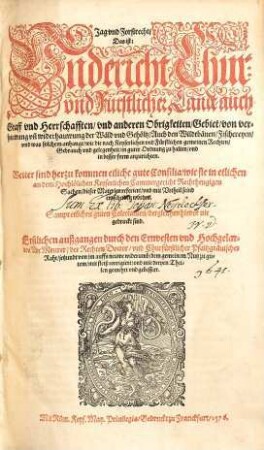 Jag vnd Forstrecht/
Das ist:
Vndericht Chur-
vnd Fürstlicher Land/ auch
Graff vnd Herrschafften/ vnd anderen Obrigkeiten/ Gebiet/ von ver-
hawung vñ widerhawung der Wäld vnd Gehöltz/ Auch den Wildtbänen/ Fischereyen/
vnd was solchem anhangt/ wie die nach Keyserlichen vnd Fürstlichen gemeinen Rechten/
Gebrauch vnd gelegenheit in gute Ordnung zu halten/ vnd
in besser form anzurichten.
Weiter sind herzu kommen etliche gute Consilia/ wie sie in etlichen
an dem Hochlöblichen Keyserlichen Cammergericht Rechthengigen
Sachen/ dieser Matery
Ex lib.
gedruckt sind.
Erstlichen außgangen durch den Ernvesten vnd Hochgelar-
ten Noe Meurer/ der Rechten Doctor/ vnd Churfürstlicher Pfaltzgräuischer
Raht/ jetzundt von jm auffs neuwe widerumb dem gemeinen Nutz zu gu-
tem/ mit fleiß corrigiert/ vnd mit dreyen Thei-
len gemehrt vnd gebessert.
Mit Röm. Keys. May. Priuilegio/ Gedruckt zu Franckfurt/ 1576.